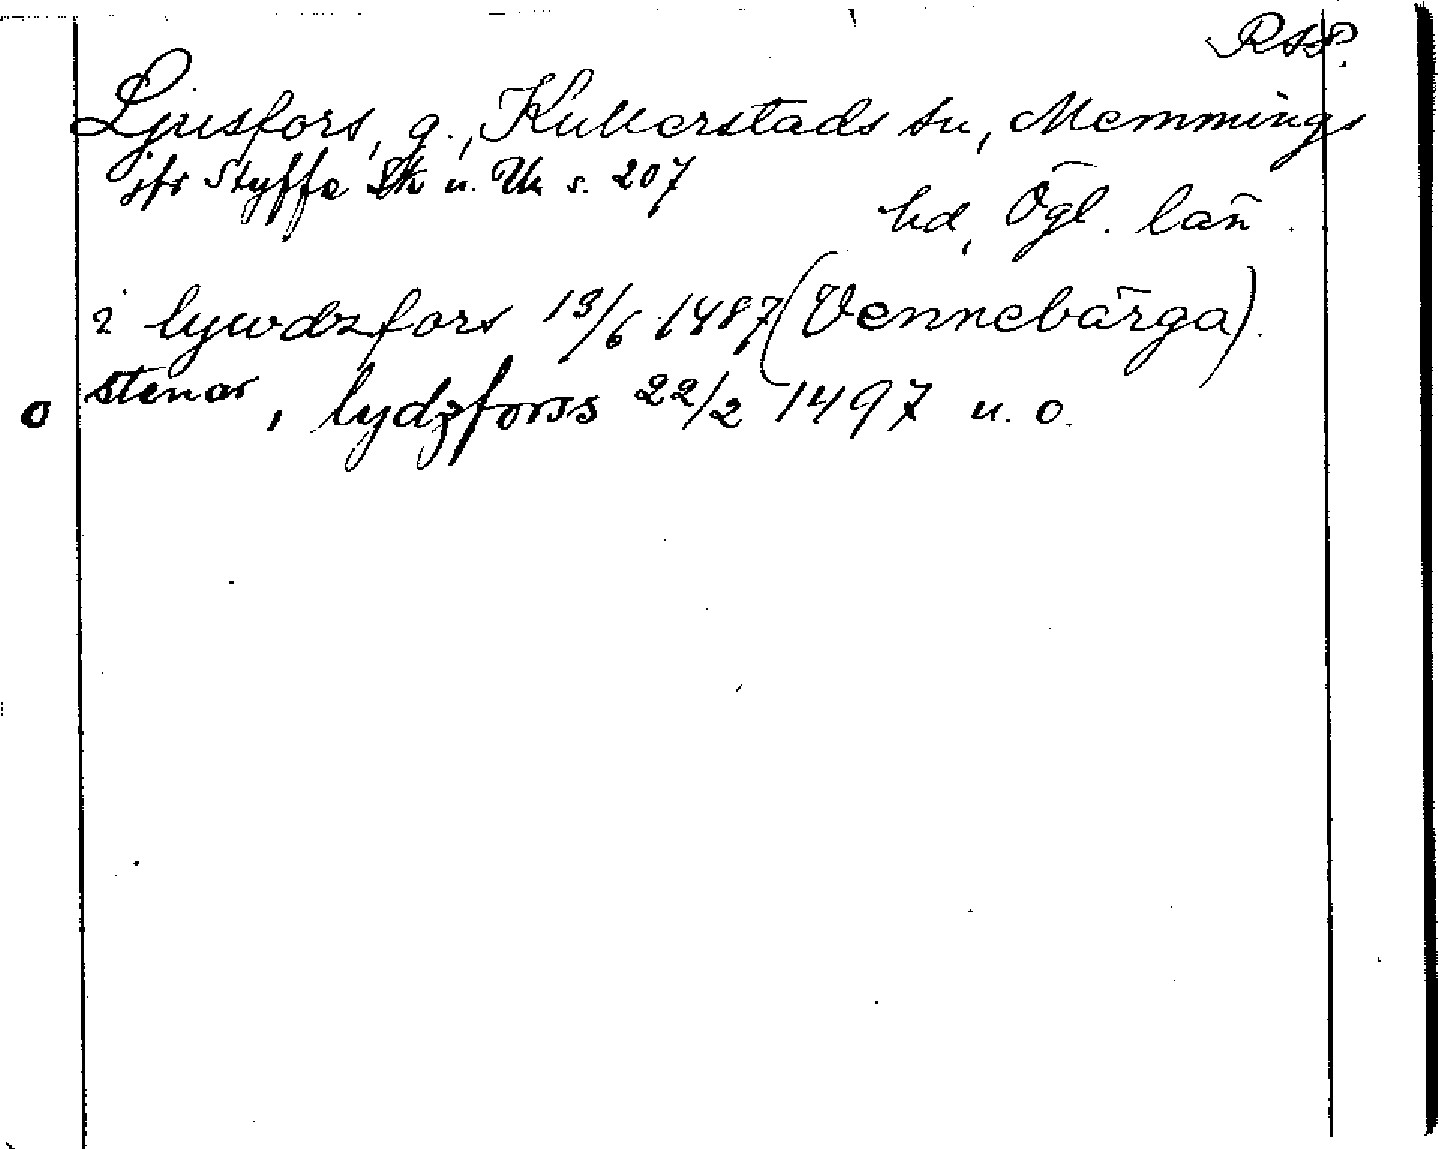 Rss.
Ljusfors, g., Kullerstads sn, Memmings
jfr Styffe Sk u. Un s. 207
hd, Ögl. län.
i lywdzfors 13/6 1487 (Vennebärga).
o stenar, lydzforss 22/2 1497 u. o.